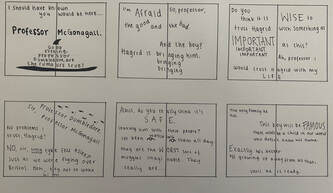 I should have known
you would be here...
Professor McGonagall.
Good
Evening,
Professor
Dumbledore.
Are the rumors true?
I'm Afraid so, professor,
the good and the bad
And the boy?
Hagrid is bringing him.
bringing
bringing
Do you
think it is WISE to
trust Hagrid with something as
IMPORTANT as this?
IMPORTANT
IMPORTANT Ah, professor, I
would trust Hagrid with my
Life
Sir, Professor Dumbledore,
Professor McGonagall.
No problems I
trust, Hagrid?
NO, sir. fell asleep
Just as we were flying over
Bristol. not to wake
think it's
SAFE,
leaving him with these people?
I've been watching them all day
they are the WORST sort of
muggles imaginable. They
really are
This boy will be FAMOUS
there won't be a child in our world
Exactly. He's
growing up away from all that.
until he is ready.